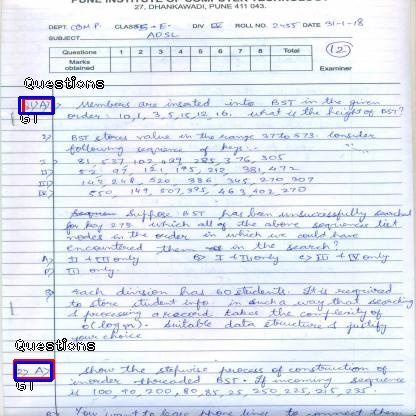 PUNE INSTITUTE OF COMPUTER TECHNOLOGY
27, DHANKAWADI, PUNE 411 043.
DEPT. COMP. CLASS S.E. DIV IV ROLL NO. 2455 DATE 31-1-18
SUBJECT ADSL
Questions 1 2 3 4 5 6 7 8 Total
Marks obtained
12
Examiner
Questions
1> A> Members are inserted into BST in the given
order: 10, 1, 3, 5, 15, 12, 16. what is the height of BST?
2> BST stores value in the range 37 to 573. consider
following sequence of keys:-
I> 81, 537, 102, 439, 285, 376, 305
II> 52, 97, 121, 195, 242, 381, 472
III> 142, 248, 520, 386, 345, 270, 307
IV> 550, 149, 507, 395, 463, 402, 270
Suppose BST has been unsuccessfully searched
for key 273. which all of the above sequences list
nodes in the order in which we could have
encountered them in the search?
A> II & III only B> I & III only C> III & IV only
D> III only.
B> Each division has 60 students. It is required
to store student info. in such a way that searching
& processing a record takes the complexity of
O(log n). suitable data structure & justify
your choice
Questions
2> A> show the stepwise process of construction of
inorder threaded BST. If incoming sequence
is 100, 90, 200, 80, 85, 25, 250, 225, 215, 235.
B> You want to lease phone lines to connect them